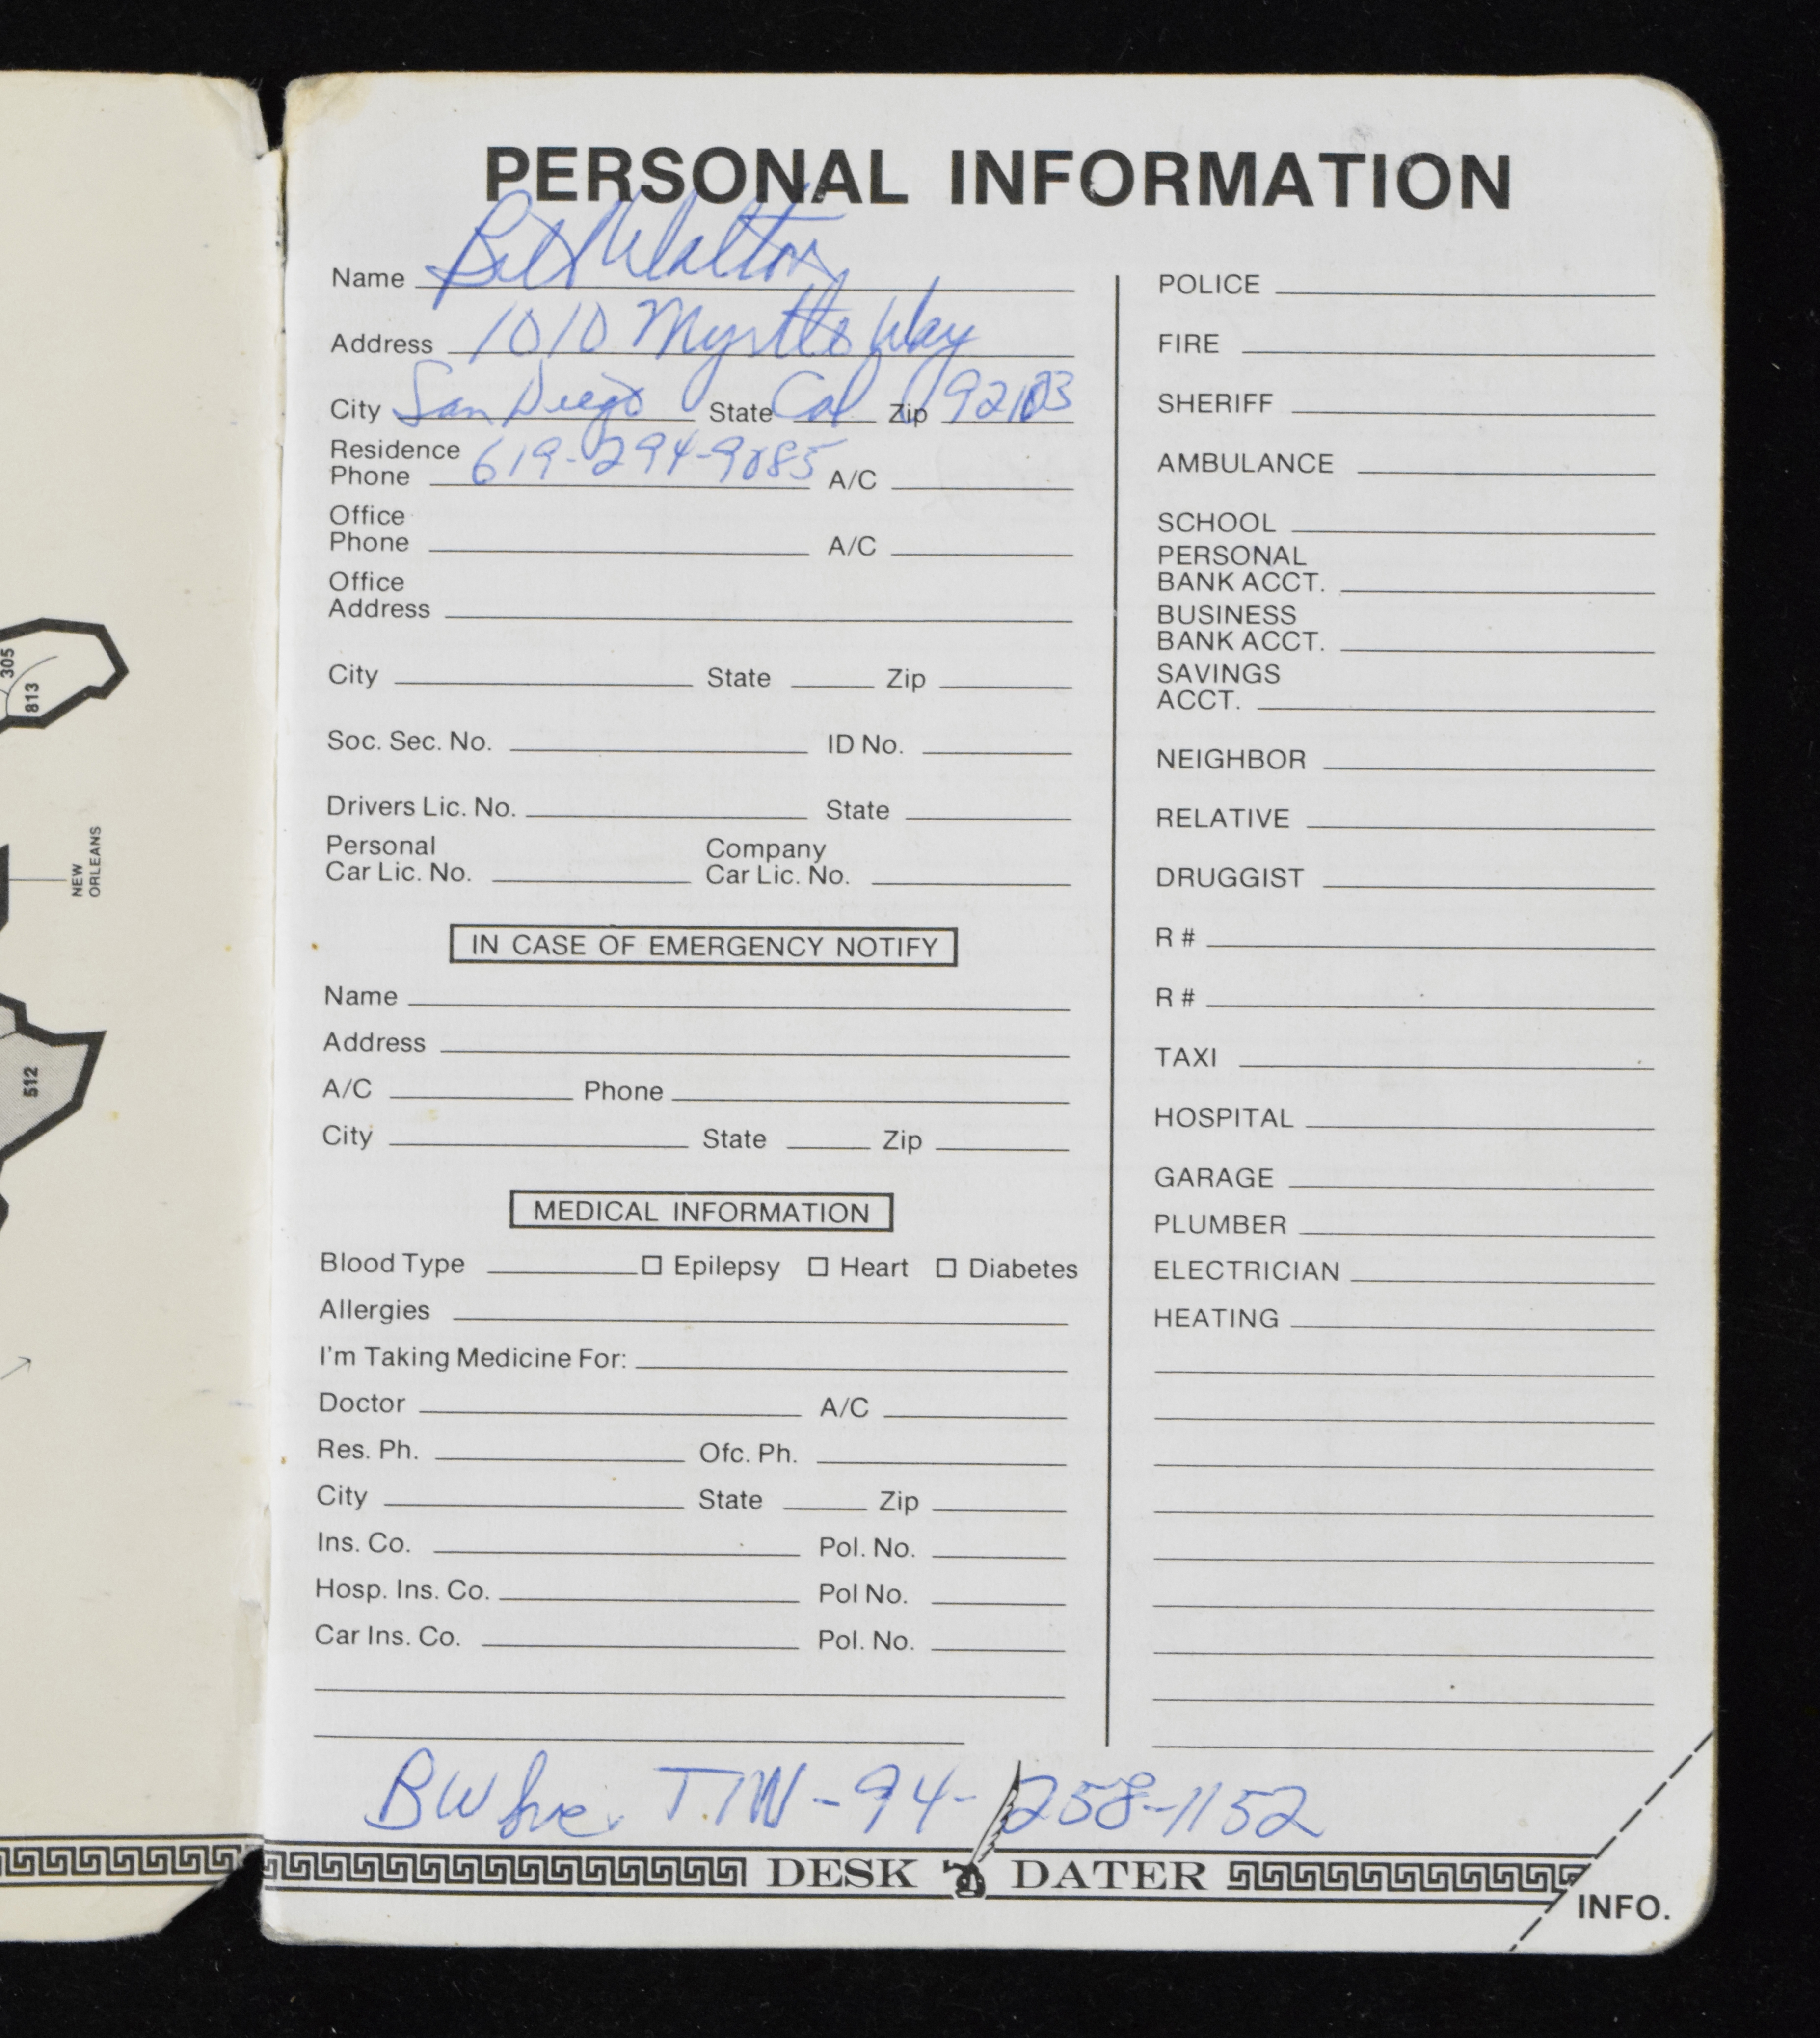 305
813
NEW
ORLEANS
512
PERSONAL INFORMATION
Name Bill Walton
Address 1010 Myrtle Way
City San Diego State Cal Zip 92103
Residence
Phone 619-294-9085 A/C
Office
Phone A/C
Office
Address
City State Zip
Soc. Sec. No. ID No.
Drivers Lic. No. State
Personal Company
Car Lic. No. Car Lic. No.
IN CASE OF EMERGENCY NOTIFY
Name
Address
A/C Phone
City State Zip
MEDICAL INFORMATION
Blood Type Epilepsy Heart Diabetes
Allergies
I'm Taking Medicine For:
Doctor A/C
Res. Ph. Ofc. Ph.
City State Zip
Ins. Co. Pol. No.
Hosp. Ins. Co. Pol No.
Car Ins. Co. Pol. No.
POLICE
FIRE
SHERIFF
AMBULANCE
SCHOOL
PERSONAL
BANK ACCT.
BUSINESS
BANK ACCT.
SAVINGS
ACCT.
NEIGHBOR
RELATIVE
DRUGGIST
R #
R #
TAXI
HOSPITAL
GARAGE
PLUMBER
ELECTRICIAN
HEATING
BW Inc. TIN-94-258-1152
DESK DATER
INFO.